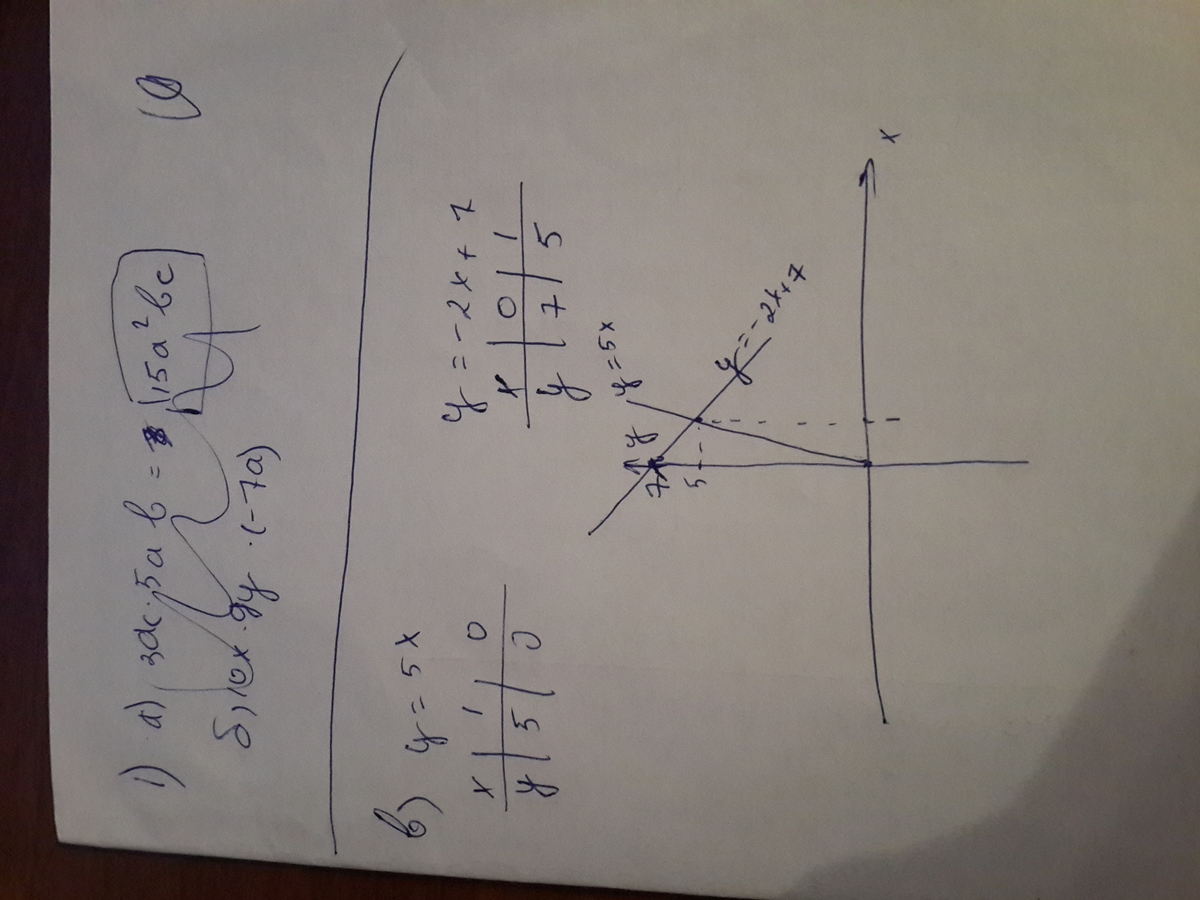 1) а) 3ac · 5a b = 15a²bc
б) 10x · 9y · (-7a)
в) y = 5x
x | 1 | 0
y | 5 | 0
y = -2x + 7
x | 0 | 1
y | 7 | 5
y
y = 5x
7
5
y = -2x+7
x